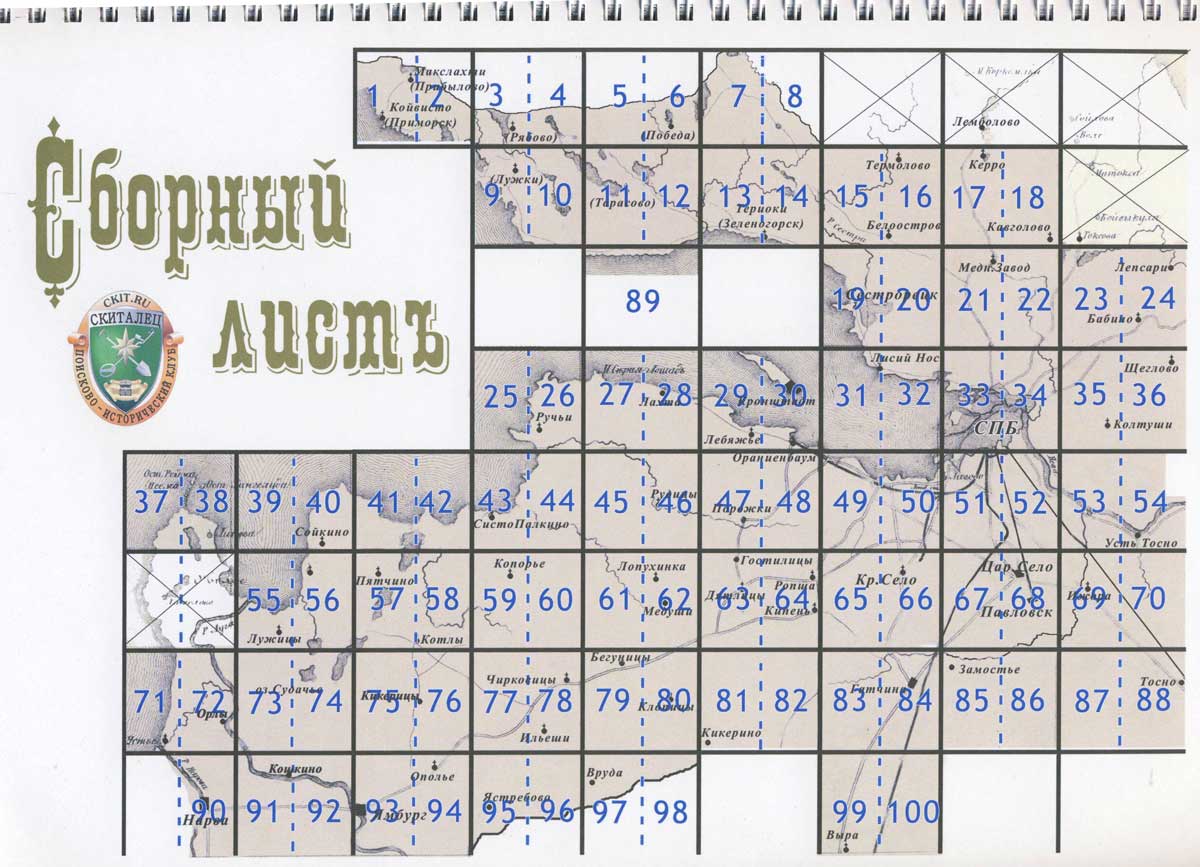 Сборный
листъ
CKIT.RU
СКИТАЛЕЦ
ПОИСКОВО - ИСТОРИЧЕСКИЙ КЛУБ
Макслахти
(Прабылово)
1 2 3 4 5 6 7 8
Койвисто
(Приморск)
(Рябово)
(Победа)
Лемболово
(Лужки)
Термолово
Керро
9 10 11 12 13 14 15 16 17 18
(Тарасово)
Териоки
(Зеленогорск)
Р. Сестра
Белоостров
Кавголово
Токсова
Медн.Завод
Лепсари
89
19 20 21 22 23 24
Сестрорецк
Бабино
Лисий Нос
Щеглово
25 26 27 28 29 30 31 32 33 34 35 36
Лахта
Кронштадт
Ручьи
Лебяжье
СПБ
Колтуши
Ораниенбаум
37 38 39 40 41 42 43 44 45 46 47 48 49 50 51 52 53 54
Сойкино
СистоПалкино
Рудицы
Порожки
Усть Тосно
Копорье
Лопухинка
Гостилицы
Пятчино
Ропша
Кр.Село
Цар.Село
55 56 57 58 59 60 61 62 63 64 65 66 67 68 69 70
Р. Луга
Медуши
Дятлицы
Кипень
Павловск
Ижора
Лужицы
Котлы
Бегуницы
Замостье
Чирковицы
Тосно
оз.Судачье
Гатчина
71 72 73 74 75 76 77 78 79 80 81 82 83 84 85 86 87 88
Орлы
Клопицы
Устье
Ильеши
Кикерино
Кошкино
Ополье
Вруда
Ястребово
90 91 92 93 94 95 96 97 98 99 100
Нарва
Ямбург
Выра